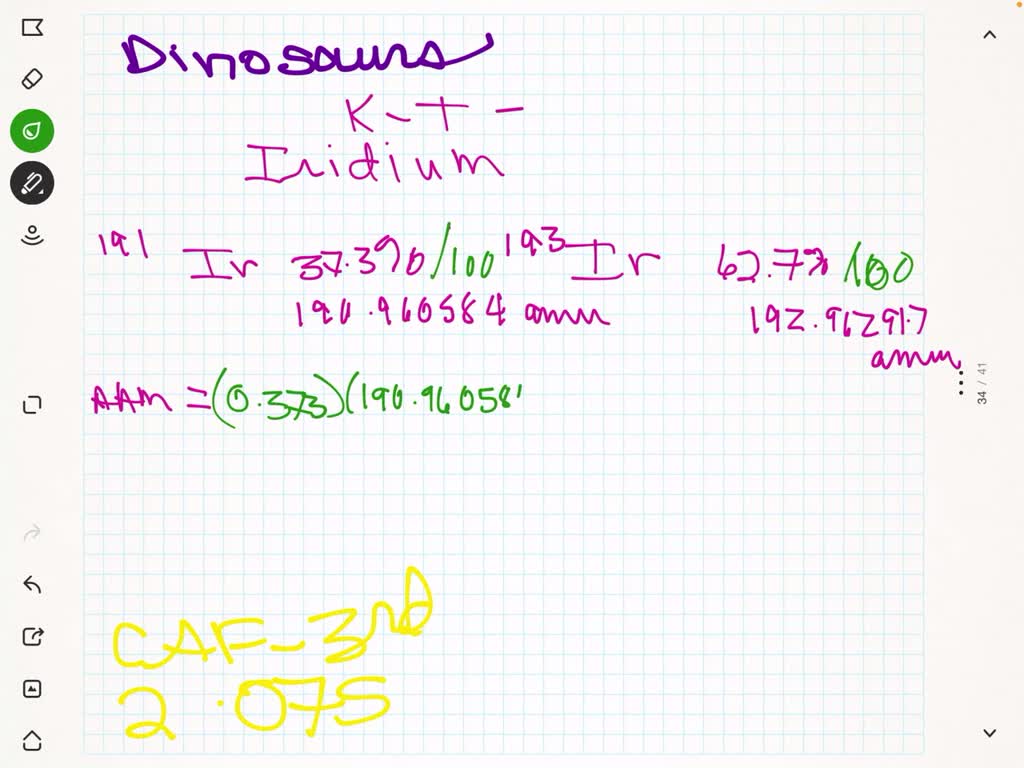 Dinosaurs
K-T-
Iridium
191 Ir 37.3%/100 193 Ir 62.7%/100
190.960584 amu 192.962917
amu
AAM = (0.373)(190.96058
34 / 41
CAF-3rd
2.075